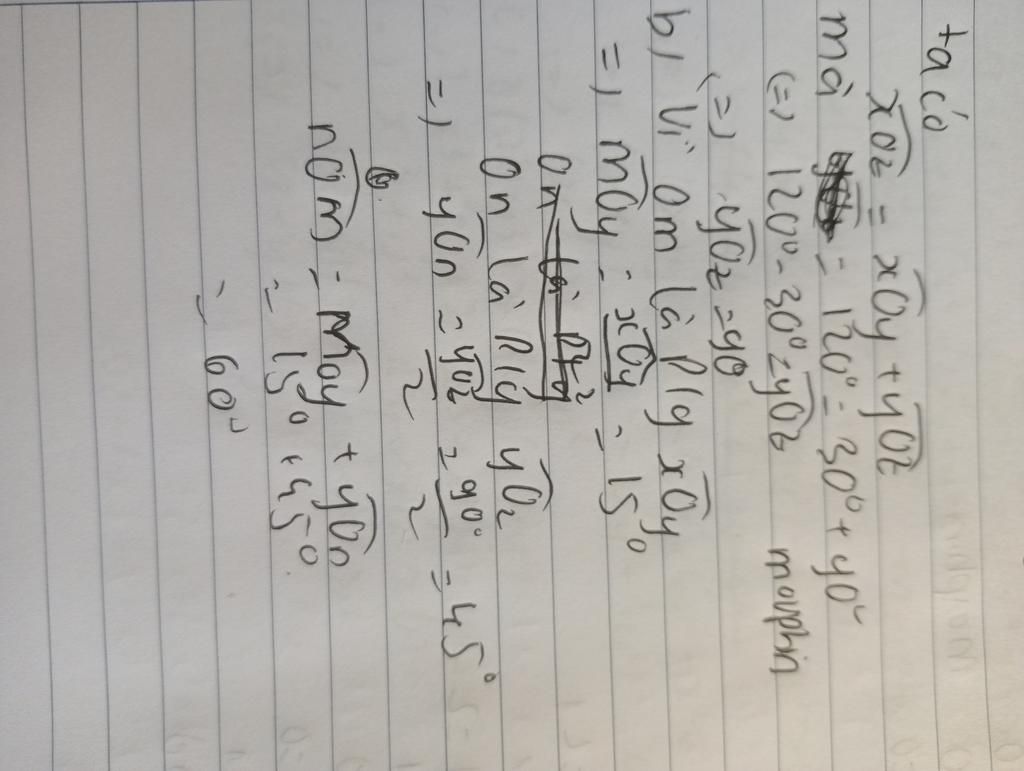 ta có
xOz = xOy + yOz
mà = 120° = 30° + yO
(=) 120° - 30° = yOz
(=) yOz = 90
b) Vì Om là P/g xOy
=) mOy = xOy/2 = 15°
On là P/g yOz
=) yOn = yOz/2 = 90°/2 = 45°
nOm = mOy + yOn
= 15° + 45°
= 60°